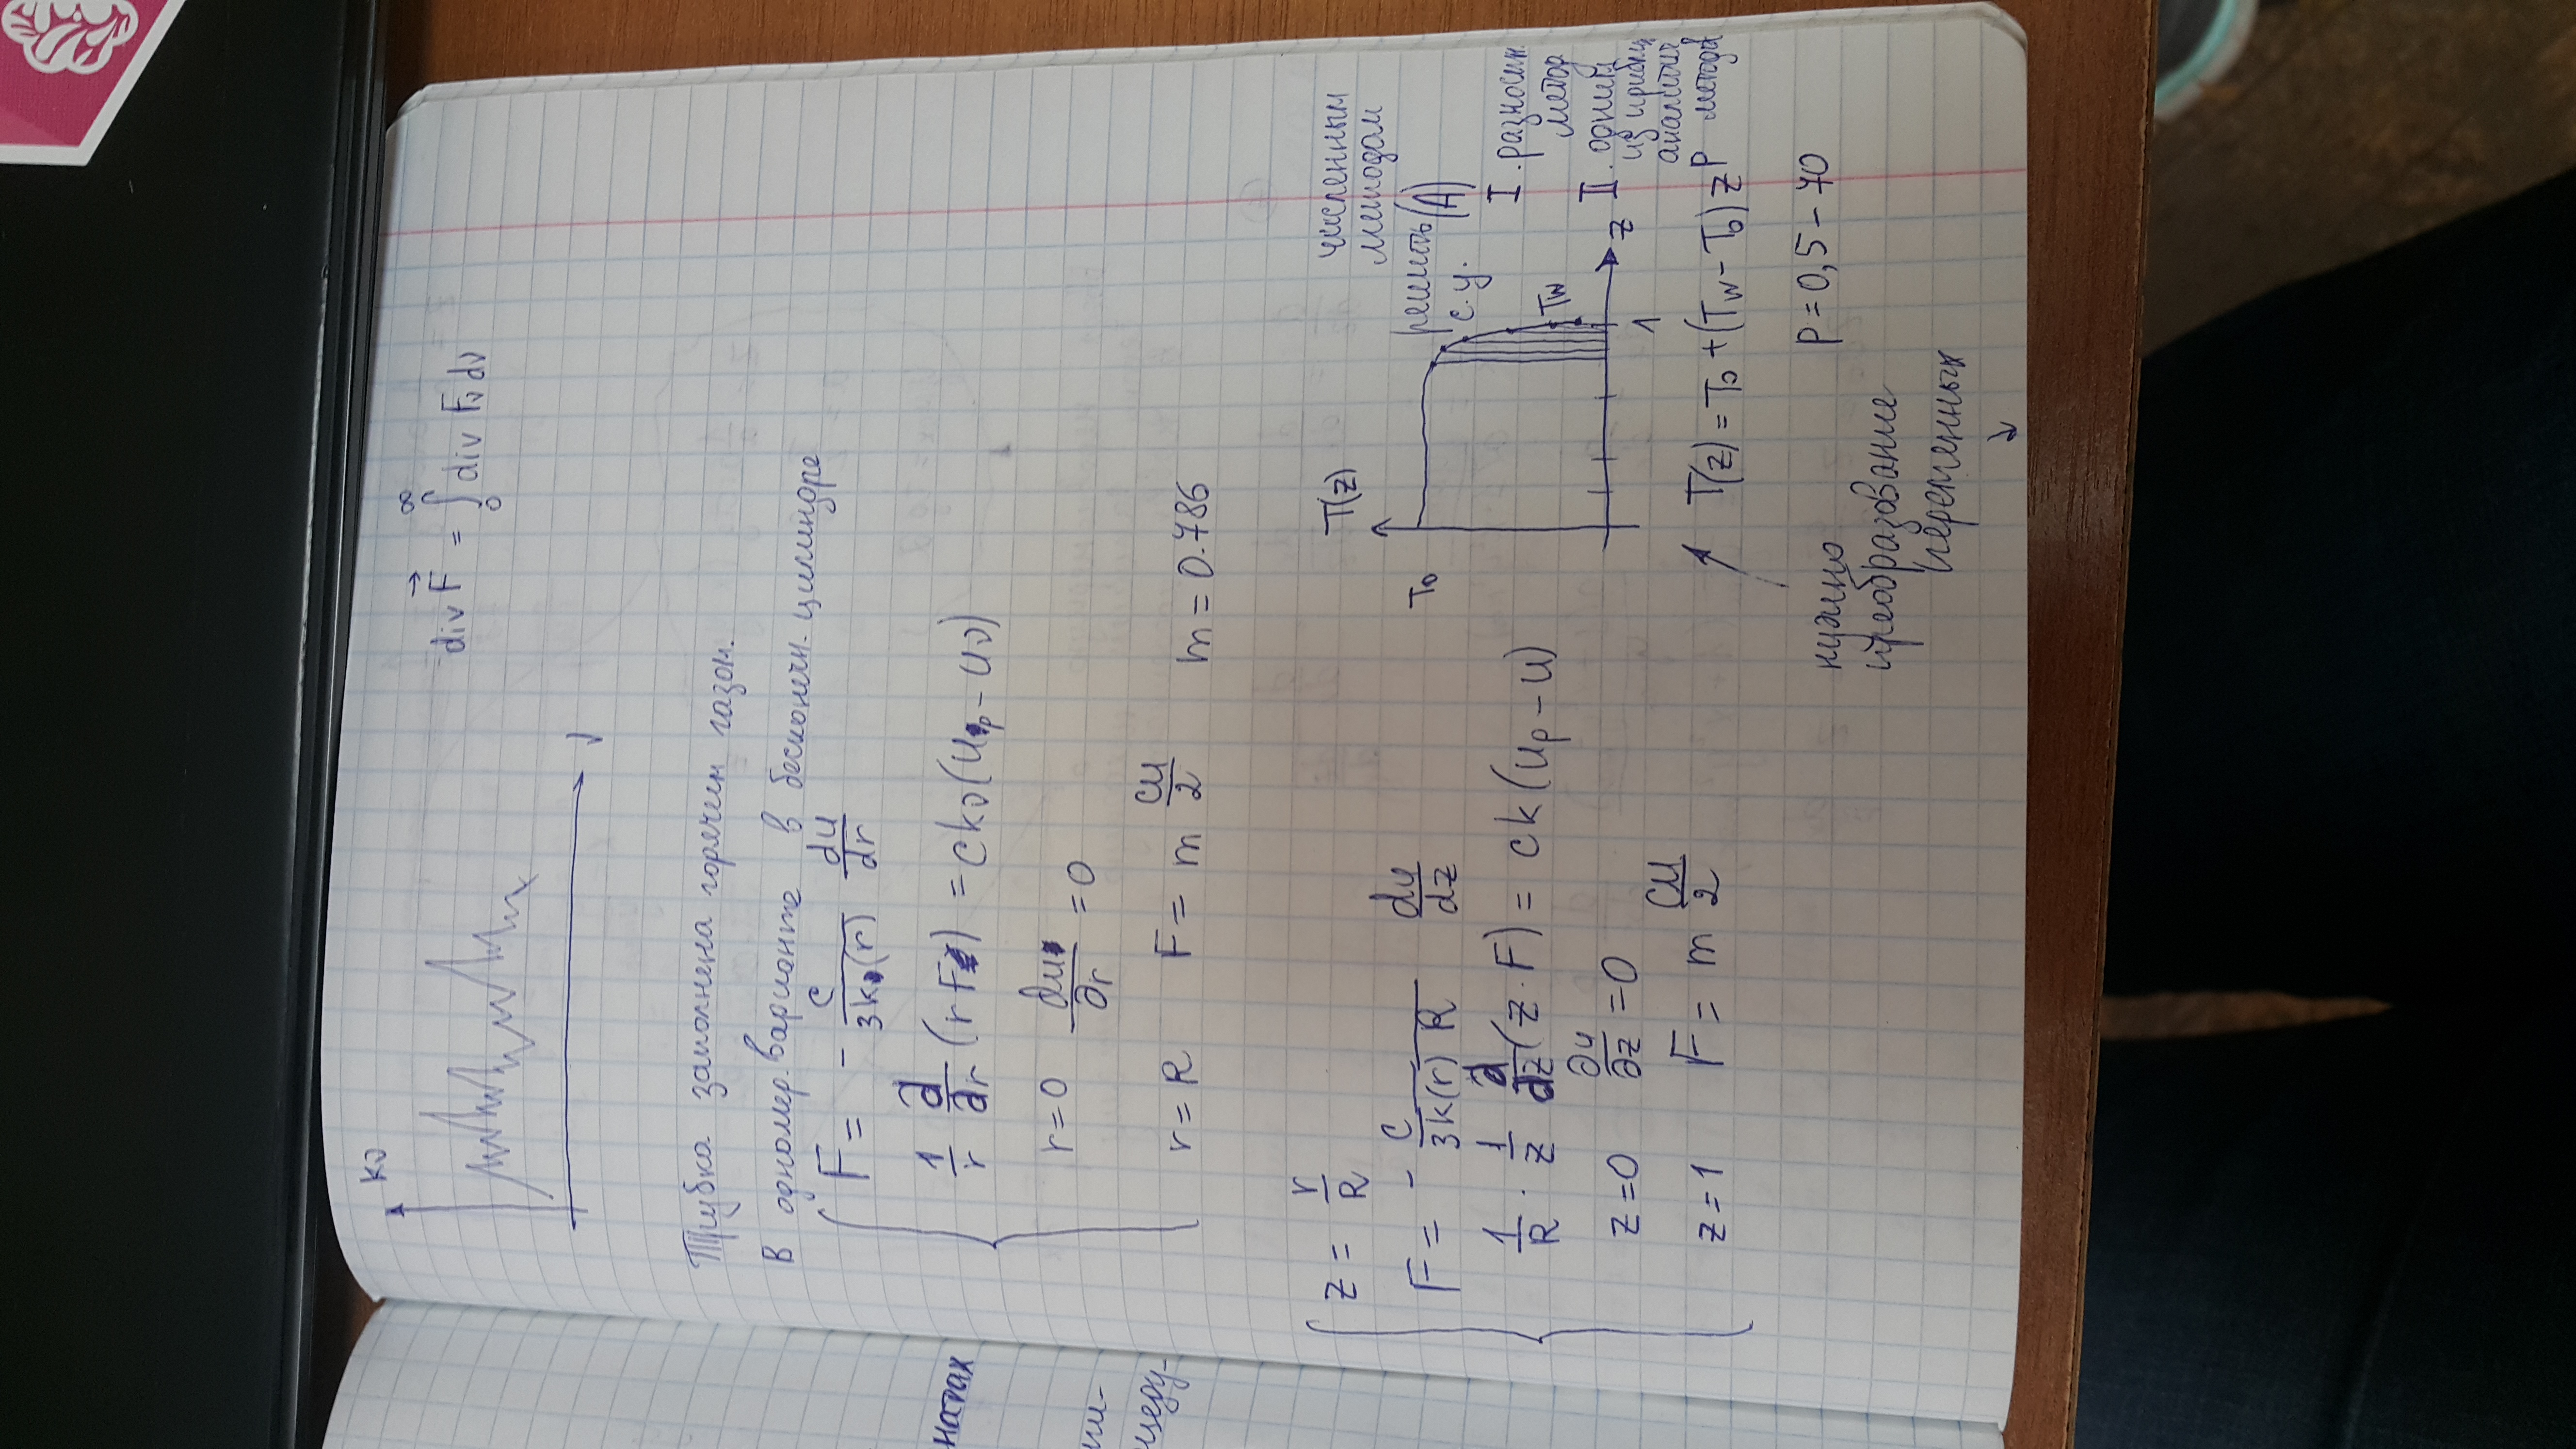 натах
kν
ν
div F⃗ = ∫₀^∞ div Fν dν
Трубка заполнена горячим газом.
В одномер. варианте в бесконечн. цилиндре
F = - c/(3k(r)) du/dr
1/r d/dr (rF) = ckν(uνp - uν)
r=0 ∂u/∂r = 0
r=R F = m cu/2 m = 0.786
z = r/R
F = - c/(3k(r)R) du/dz
1/R · 1/z d/dz (z·F) = ck(up - u)
z=0 ∂u/∂z = 0
z=1 F = m cu/2
T(z)
T0
Tw
1
z
численным
методом
решить (А)
с.у.
I. разностн
метод
II. одним
из прибл
аналитич
методов
T(z) = T0 + (Tw - T0) z^p
p = 0,5 - 40
нужно
преобразование
переменных